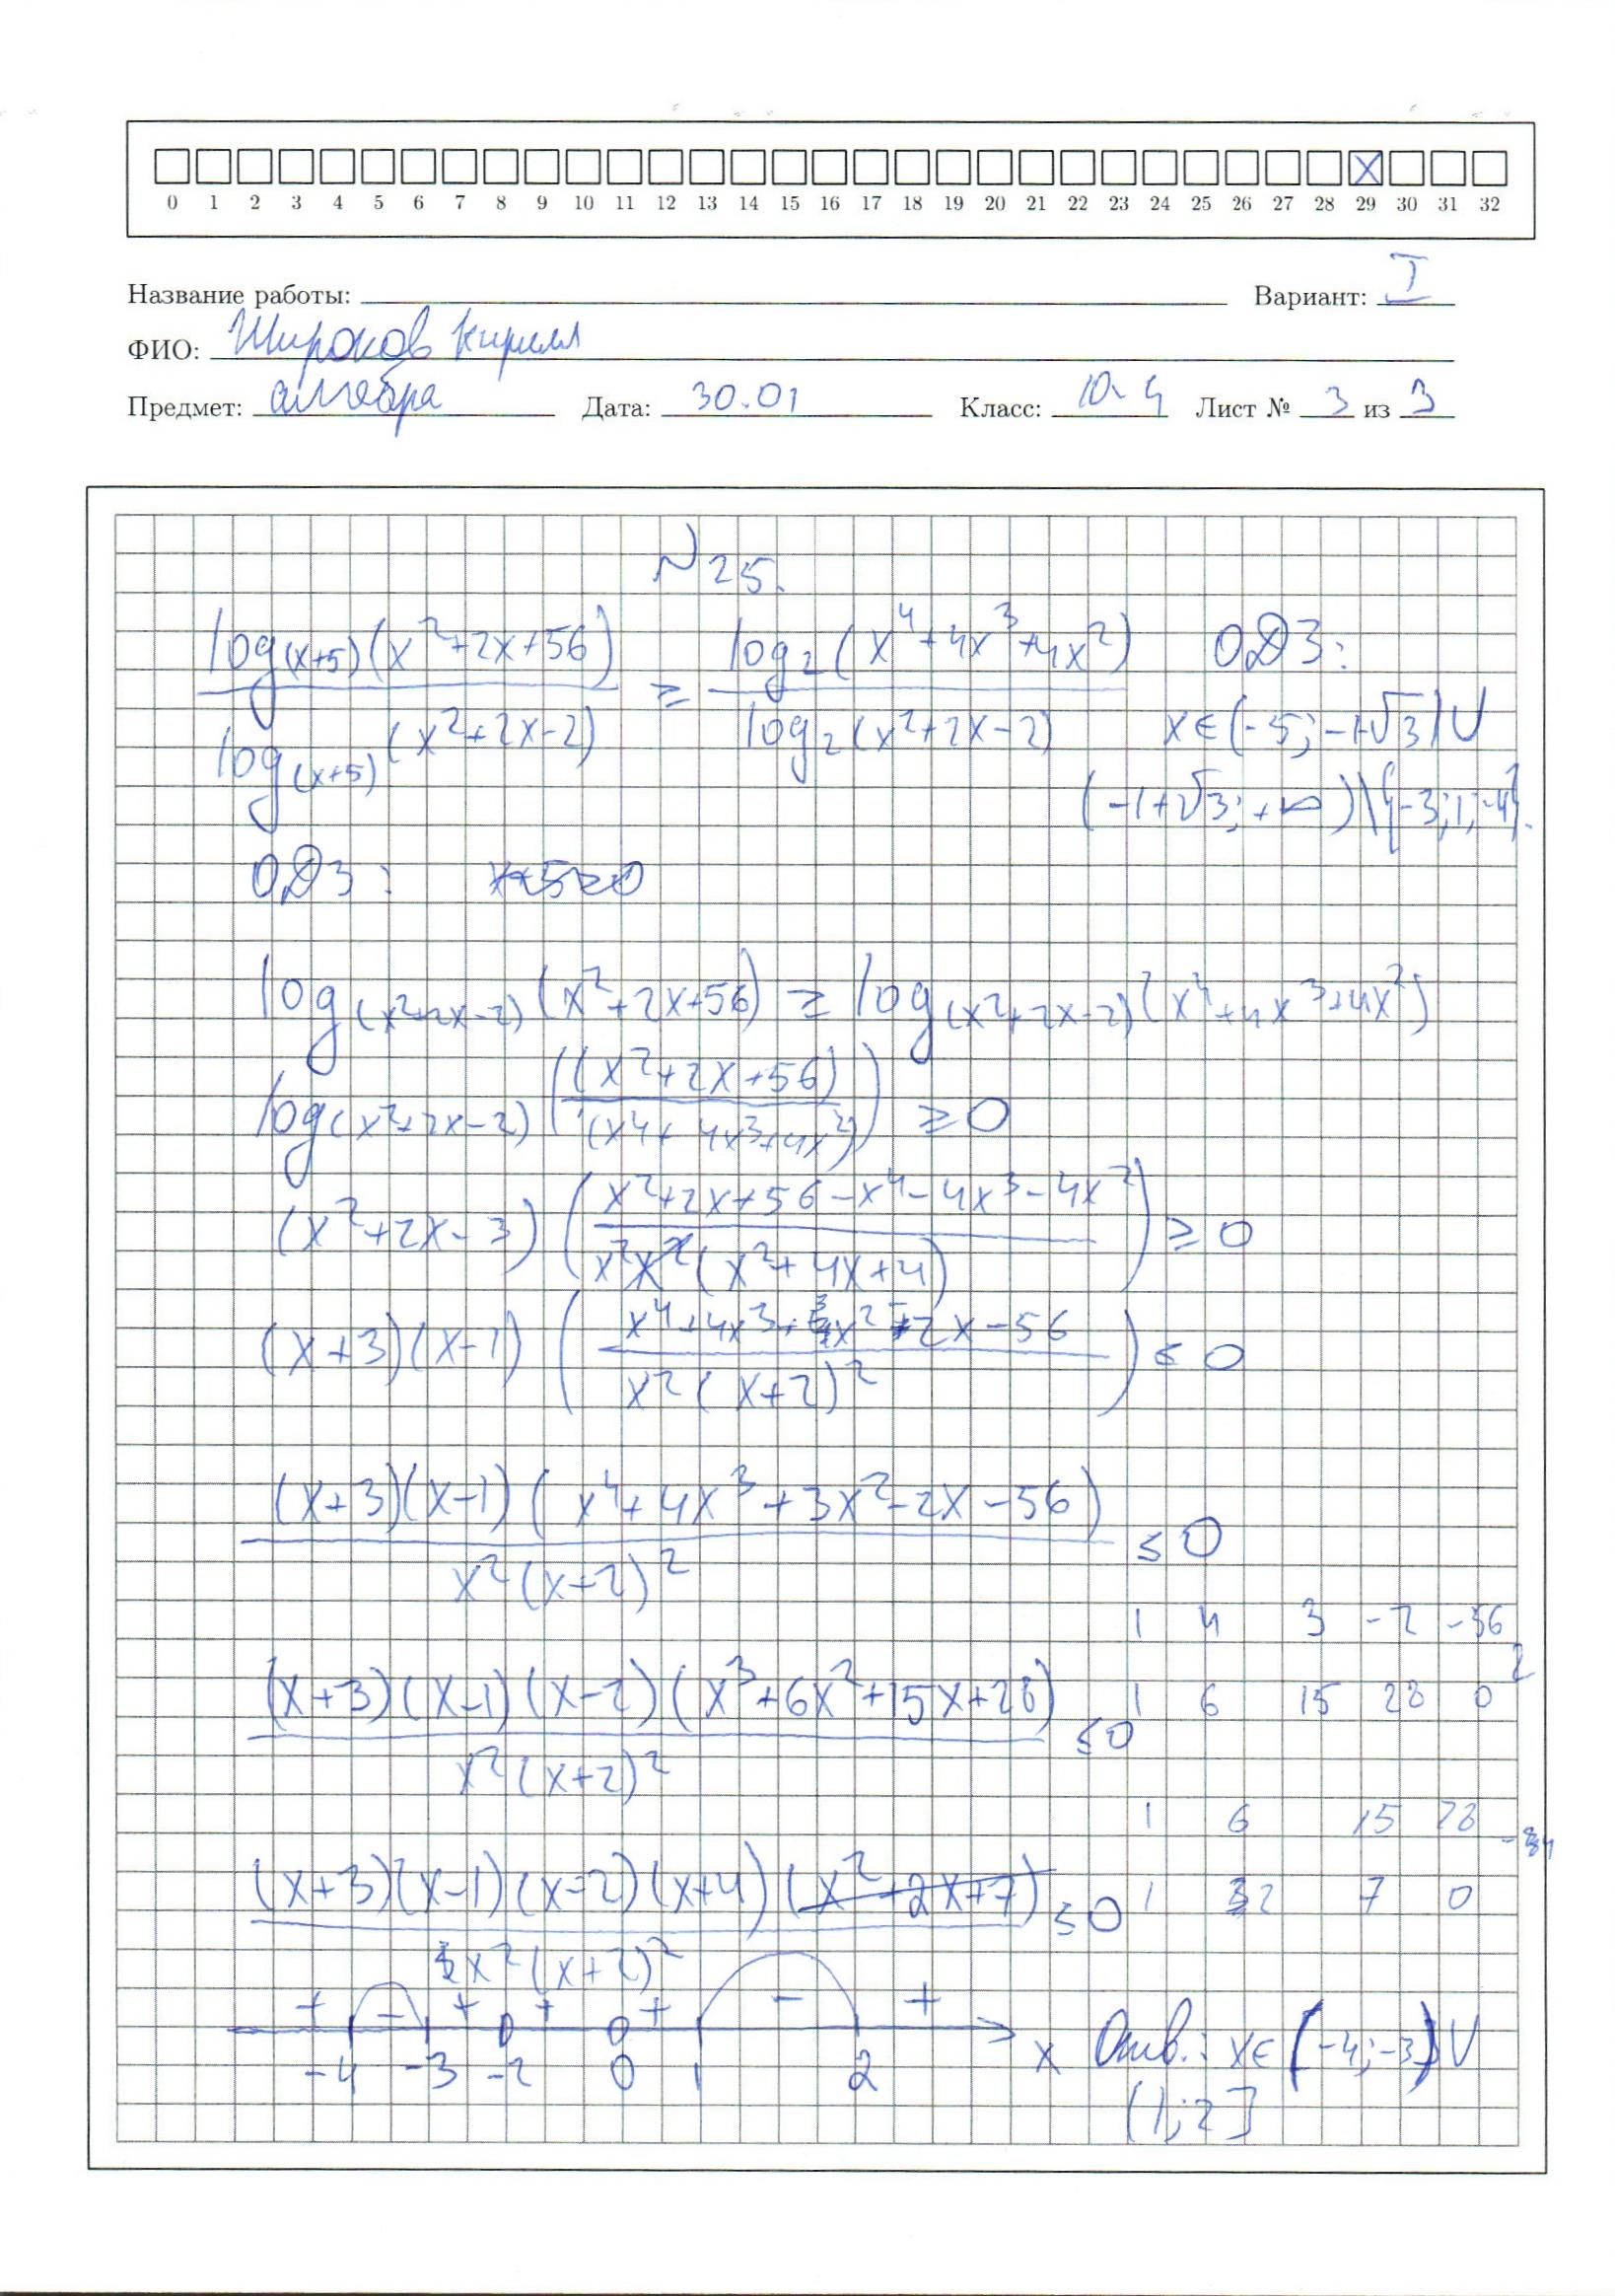 0 1 2 3 4 5 6 7 8 9 10 11 12 13 14 15 16 17 18 19 20 21 22 23 24 25 26 27 28 29 30 31 32
Название работы: Вариант: I
ФИО: Широков Кирилл
Предмет: алгебра Дата: 30.01 Класс: 10-4 Лист № 3 из 3
N 25.
log_(x+5)(x²+2x+56) / log_(x+5)(x²+2x-2) ≥ log₂(x⁴+4x³+4x²) / log₂(x²+2x-2) ОДЗ:
x∈(-5;-1-√3)∪
(-1+√3;+∞)\{-3;1;-4}.
ОДЗ:
log_(x²+2x-2)(x²+2x+56) ≥ log_(x²+2x-2)(x⁴+4x³+4x²)
log_(x²+2x-2)((x²+2x+56)/(x⁴+4x³+4x²)) ≥ 0
(x²+2x-3)((x²+2x+56-x⁴-4x³-4x²)/(x²(x²+4x+4))) ≥ 0
(x+3)(x-1)((x⁴+4x³+3x²-2x-56)/(x²(x+2)²)) ≤ 0
(x+3)(x-1)(x⁴+4x³+3x²-2x-56) / x²(x+2)² ≤ 0
1 4 3 -2 -56
2
(x+3)(x-1)(x-2)(x³+6x²+15x+28) / x²(x+2)² ≤ 0
1 6 15 28 0
1 6 15 28
-4
(x+3)(x-1)(x-2)(x+4)(x²+2x+7) / x²(x+2)² ≤ 0
1 2 7 0
+ - + + + - +
-4 -3 -2 0 1 2 x
Отв.: x∈(-4;-3)∪
(1;2]